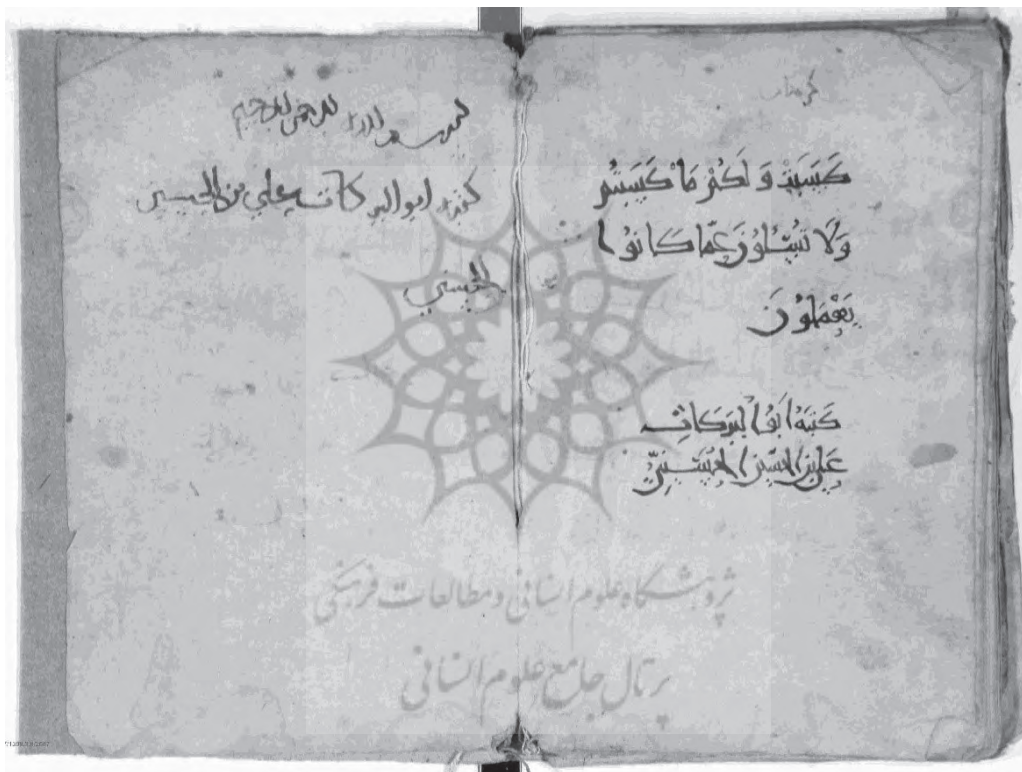 كَسَبَتْ وَلَكُمْ مَا كَسَبْتُمْ
وَلَا تُسْئَلُونَ عَمَّا كَانُوا
يَعْمَلُونَ
كَتَبَهُ أَبُو الْبَرَكَاتِ
عَلِيُّ بْنُ الْحُسَيْنِ الْحُسَيْنِيُّ
بسم الله الرحمن الرحيم
كتبه ابو البركات علي بن الحسين
الحسيني
پژوهشگاه علوم انسانی و مطالعات فرهنگی
پرتال جامع علوم انسانی